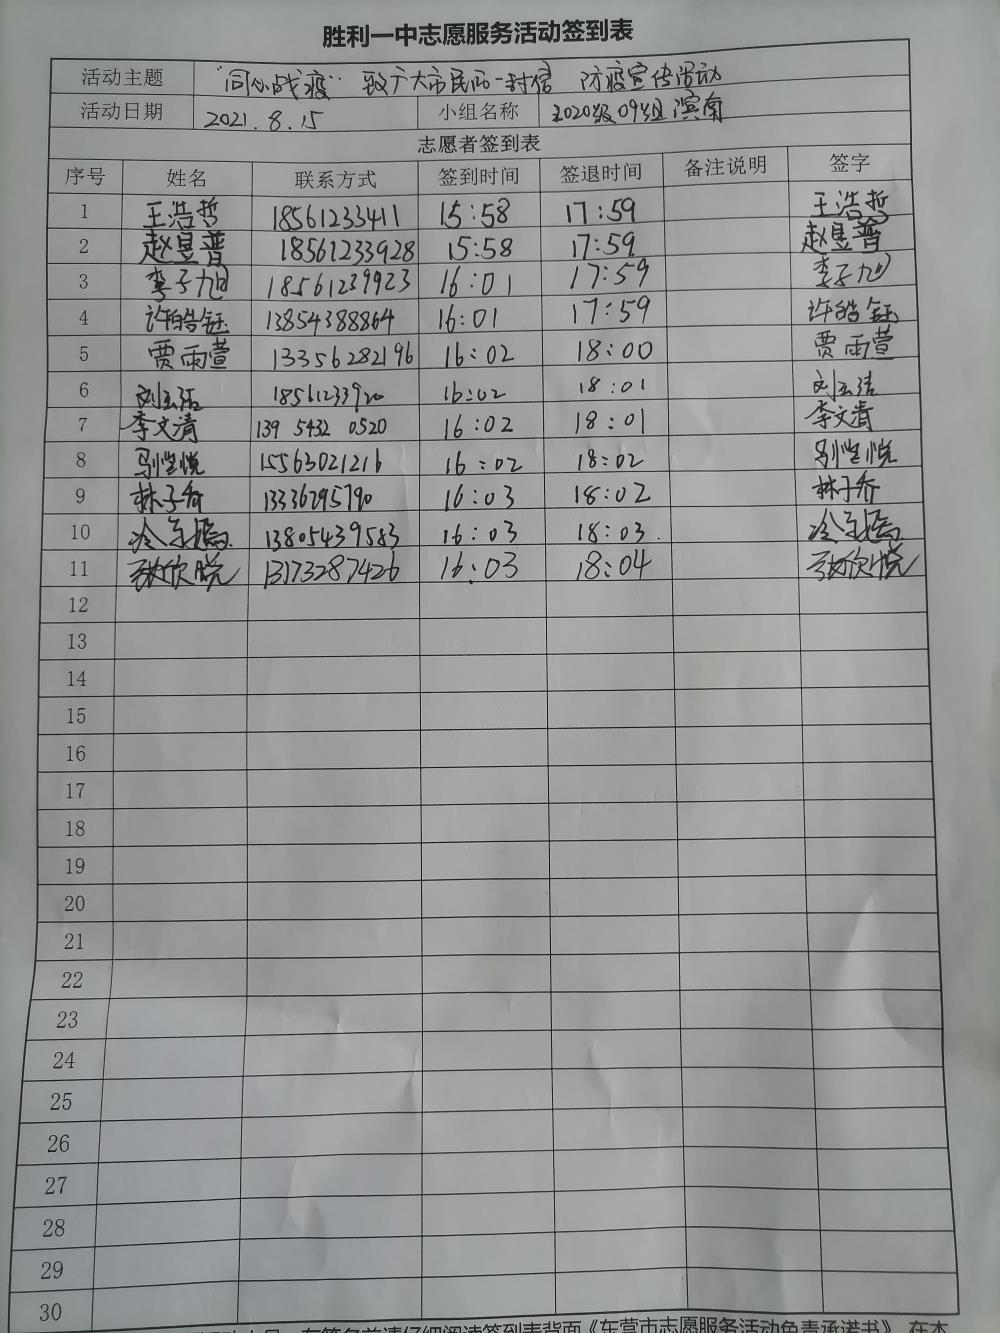 胜利一中志愿服务活动签到表
活动主题 "同心战疫" 致广大市民的一封信 防疫宣传活动
活动日期 2021.8.15 小组名称 2020级09组滨南
志愿者签到表
序号 姓名 联系方式 签到时间 签退时间 备注说明 签字
1 王浩哲 18561233411 15:58 17:59 王浩哲
2 赵昱普 18561233928 15:58 17:59 赵昱普
3 李子旭 18561239923 16:01 17:59 李子旭
4 许皓钰 13854388864 16:01 17:59 许皓钰
5 贾雨萱 13356282196 16:02 18:00 贾雨萱
6 刘玉洁 18561233920 16:02 18:01 刘玉洁
7 李文清 139 5432 0520 16:02 18:01 李文清
8 15563021216 16:02 18:02
9 林子乔 13336295790 16:03 18:02 林子乔
10 13805439583 16:03 18:03.
11 张欣悦 13173287426 16:03 18:04 张欣悦
12
13
14
15
16
17
18
19
20
21
22
23
24
25
26
27
28
29
30
在签名前请仔细阅读签到表背面《东营市志愿服务活动免责承诺书》，在本